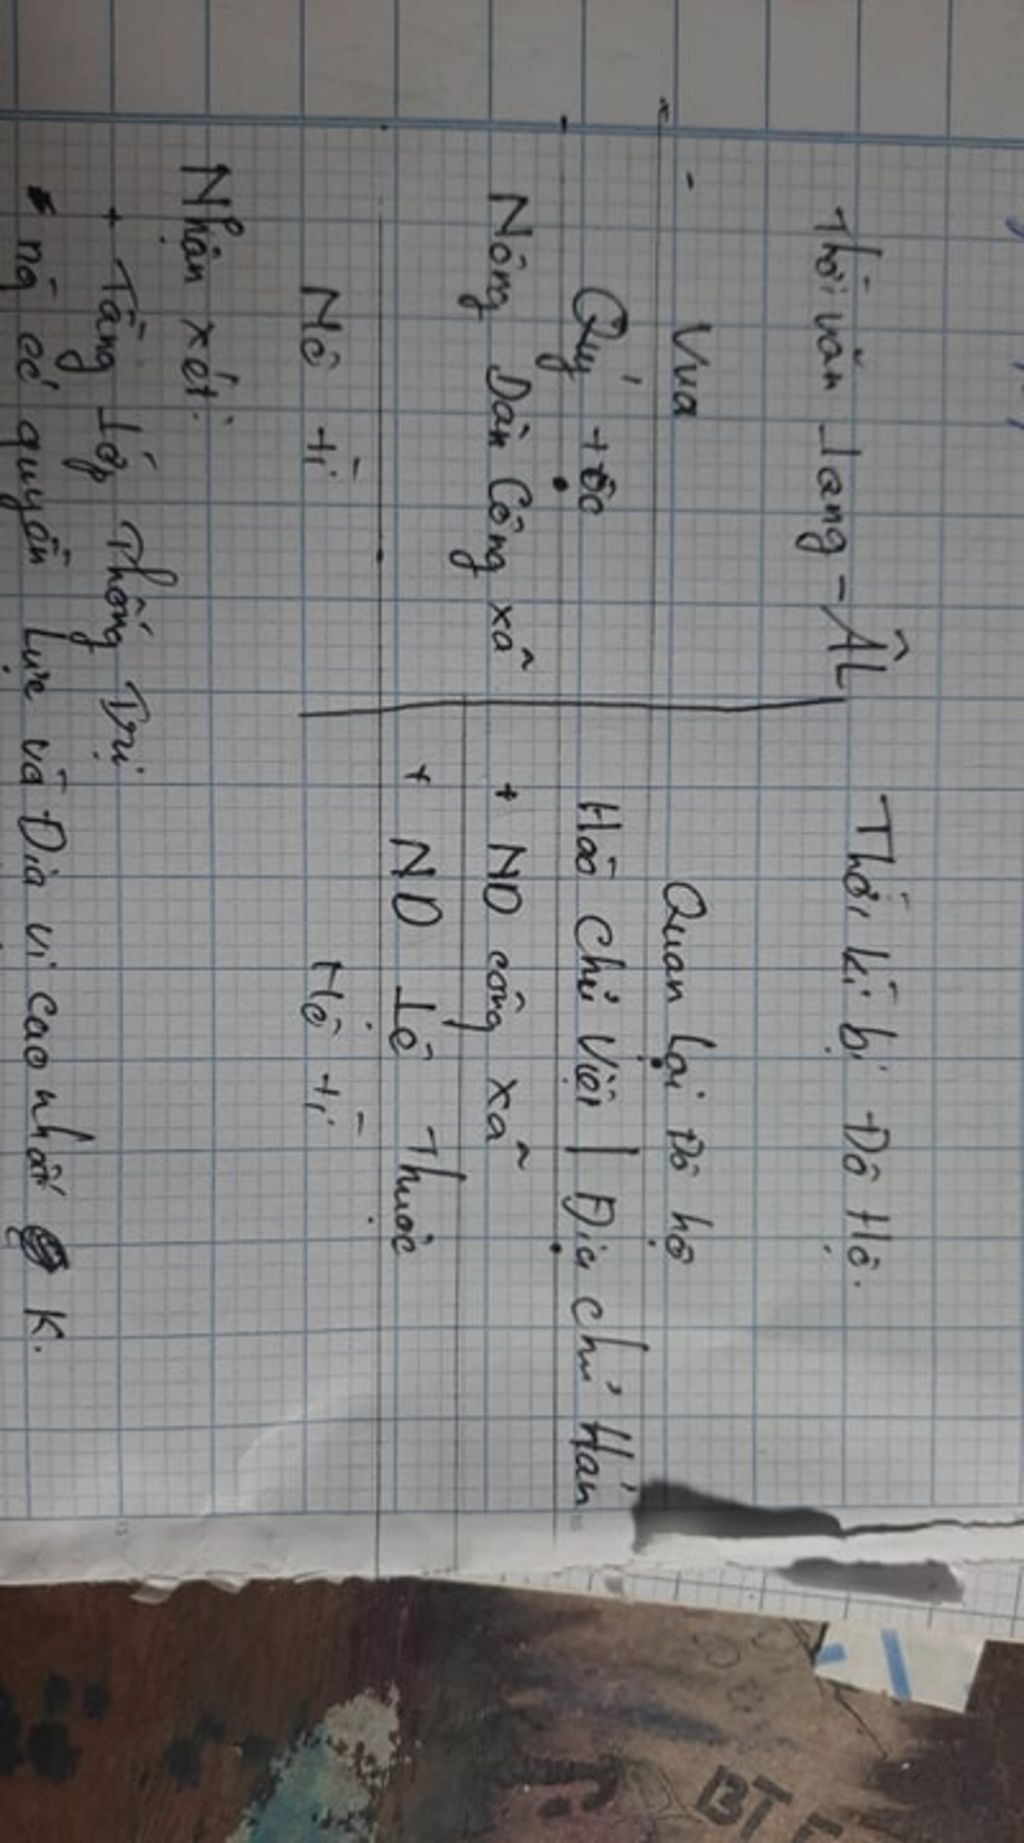 Thời văn Lang - ÂL Thời kì bị Đô Hộ.
- Vua Quan Lại Đô hộ
Quý tộc Hào Chủ Việt | Địa chủ Hán
Nông Dân Công xã + ND công xã
+ ND Lệ Thuộc
Nô tì Nô tì
Nhận xét:
+ Tầng Lớp Thống Trị
có quyền Lực và Địa vị cao nhất K.
BT